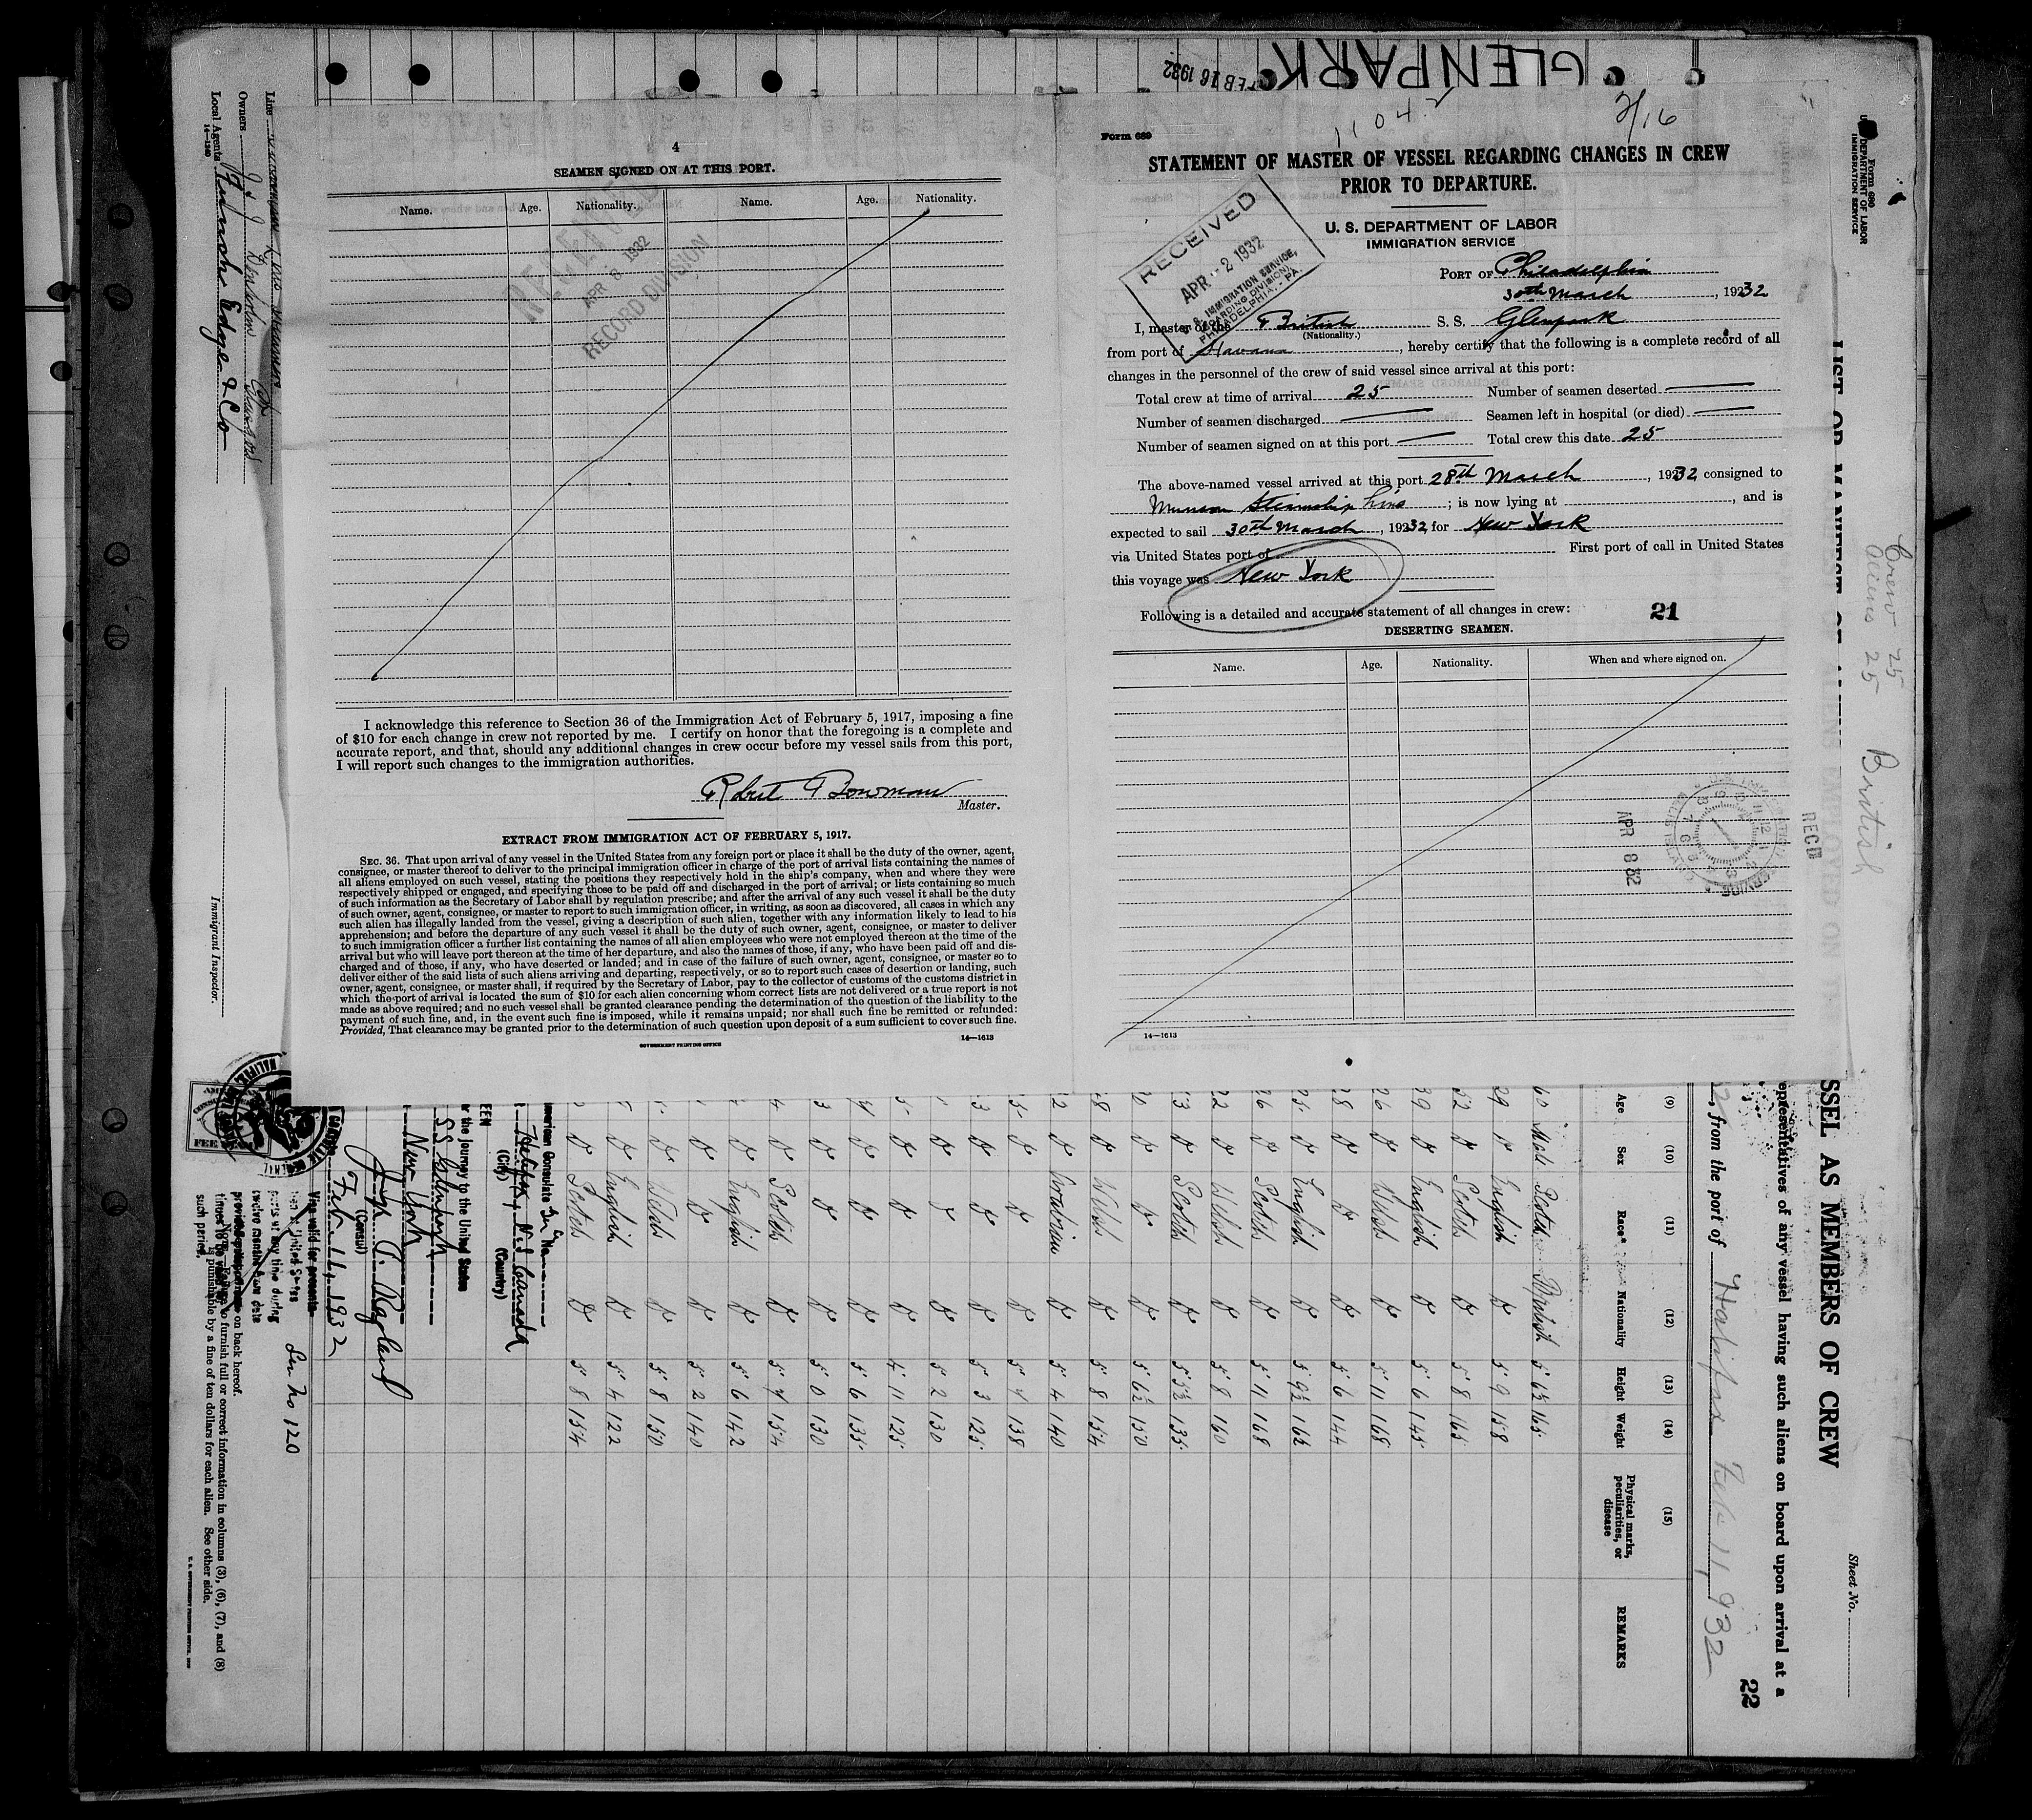 GLENPARK
FEB 16 1932
1104
2/16
4
SEAMEN SIGNED ON AT THIS PORT.
Name. Age. Nationality. Name. Age. Nationality.
APR 8 1932
RECORD DIVISION
I acknowledge this reference to Section 36 of the Immigration Act of February 5, 1917, imposing a fine
of $10 for each change in crew not reported by me. I certify on honor that the foregoing is a complete and
accurate report, and that, should any additional changes in crew occur before my vessel sails from this port,
I will report such changes to the immigration authorities.
Robert Bowman
Master.
EXTRACT FROM IMMIGRATION ACT OF FEBRUARY 5, 1917.
SEC. 36. That upon arrival of any vessel in the United States from any foreign port or place it shall be the duty of the owner, agent,
consignee, or master thereof to deliver to the principal immigration officer in charge of the port of arrival lists containing the names of
all aliens employed on such vessel, stating the positions they respectively hold in the ship's company, when and where they were
respectively shipped or engaged, and specifying those to be paid off and discharged in the port of arrival; or lists containing so much
of such information as the Secretary of Labor shall by regulation prescribe; and after the arrival of any such vessel it shall be the duty
of such owner, agent, consignee, or master to report to such immigration officer, in writing, as soon as discovered, all cases in which any
such alien has illegally landed from the vessel, giving a description of such alien, together with any information likely to lead to his
apprehension; and before the departure of any such vessel it shall be the duty of such owner, agent, consignee, or master to deliver
to such immigration officer a further list containing the names of all alien employees who were not employed thereon at the time of the
arrival but who will leave port thereon at the time of her departure, and also the names of those, if any, who have been paid off and dis-
charged and of those, if any, who have deserted or landed; and in case of the failure of such owner, agent, consignee, or master so to
deliver either of the said lists of such aliens arriving and departing, respectively, or so to report such cases of desertion or landing, such
owner, agent, consignee, or master shall, if required by the Secretary of Labor, pay to the collector of customs of the customs district in
which the port of arrival is located the sum of $10 for each alien concerning whom correct lists are not delivered or a true report is not
made as above required; and no such vessel shall be granted clearance pending the determination of the question of the liability to the
payment of such fine, and, in the event such fine is imposed, while it remains unpaid; nor shall such fine be remitted or refunded:
Provided, That clearance may be granted prior to the determination of such question upon deposit of a sum sufficient to cover such fine.
GOVERNMENT PRINTING OFFICE 14—1613
Form 689
STATEMENT OF MASTER OF VESSEL REGARDING CHANGES IN CREW
PRIOR TO DEPARTURE.
U. S. DEPARTMENT OF LABOR
IMMIGRATION SERVICE
RECEIVED
APR - 2 1932
IMMIGRATION SERVICE,
PHILADELPHIA - PA.
PORT OF Philadelphia
30th March, 1932
I, master of the British S. S. Glenpark
(Nationality.)
from port of Havana, hereby certify that the following is a complete record of all
changes in the personnel of the crew of said vessel since arrival at this port:
Total crew at time of arrival 25 Number of seamen deserted
Number of seamen discharged Seamen left in hospital (or died)
Number of seamen signed on at this port Total crew this date 25
The above-named vessel arrived at this port 28th March, 1932 consigned to
Munson Steamship Line; is now lying at , and is
expected to sail 30th March, 1932 for New York
via United States port of First port of call in United States
this voyage was New York
Following is a detailed and accurate statement of all changes in crew:
21
DESERTING SEAMEN.
Name. Age. Nationality. When and where signed on.
APR 8 32
REC'D
14—1613
Line
Owners J & J Denholm
Local Agents Funch Edge & Co
14—1240
Immigrant Inspector.
Form 680
U. S. DEPARTMENT OF LABOR
IMMIGRATION SERVICE
Crew 25
Aliens 25
British
SSEL AS MEMBERS OF CREW
Sheet No.
epresentatives of any vessel having such aliens on board upon arrival at a
, from the port of Halifax Feb 11, 1932
22
(9) (10) (11) (12) (13) (14) (15)
Age Sex Race* Nationality Height Weight Physical marks, peculiarities, or disease REMARKS
60 Male Scotch British 5 6½ 165
29 " English " 5 9 158
52 " Scotch " 5 8 165
39 " English " 5 6 145
26 " Welsh " 5 11 168
28 " " " 5 6 144
English " 5 9½
26 " Scotch " 5 11 168
22 " Welsh " 5 8 160
Scotch " 5 5½ 135
5 6½ 150
Welsh " 5 8 154
5 4 140
5 7 138
5 3 125
5 2 130
4 11 125
5 6 135
5 0 130
Scotch " 5 7 154
English " 5 6 142
5 2 140
Welsh " 5 8 150
English " 5 4 122
Scotch " 5 8 154
merican Consulate
Halifax, N.S Canada
(City) (Country)
EEN
r the journey to the United States
SS Glenpark
New York
(Consul)
Feb. 11, 1932
Ser No 120
on back hereof.
furnish full or correct information in columns (3), (6), (7), and (8)
is punishable by a fine of ten dollars for each alien. See other side.
such period.